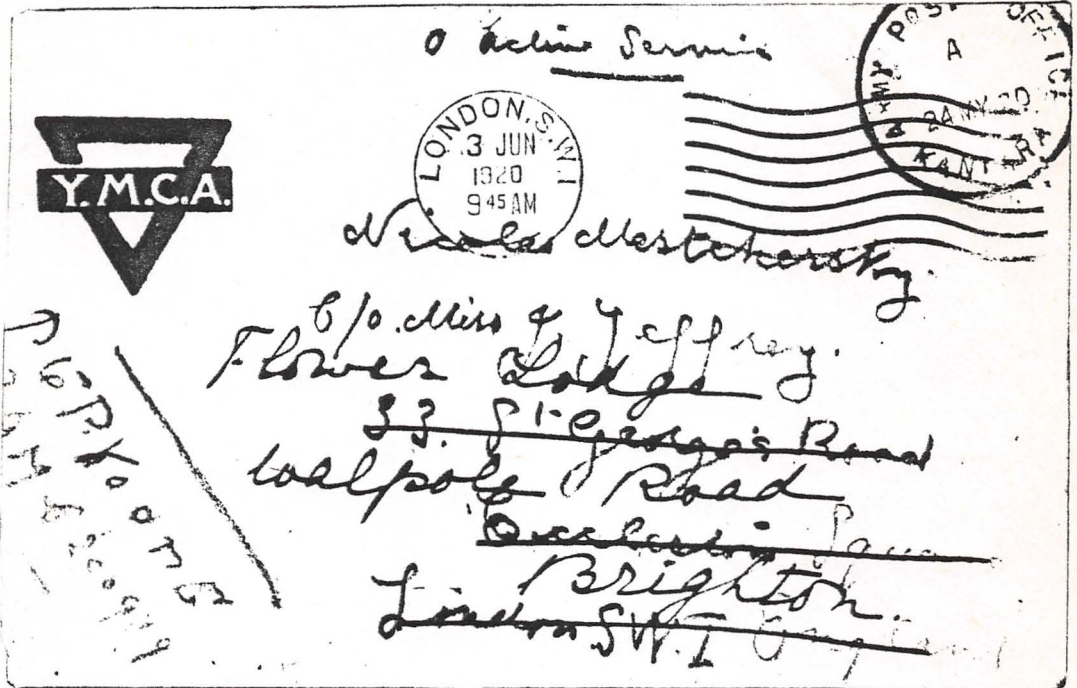 Active Service
ARMY POST OFFICE
A
24 MY 20
KANTARA
LONDON. S.W.1
3 JUN
1920
9 45 AM
Y.M.C.A.
Nicolas Mestchersky.
C/o. Miss Jeffrey.
Flower Lodge
33. St George's Road
Walpole Road
Eccleston Square
Brighton.
London S.W.1 England